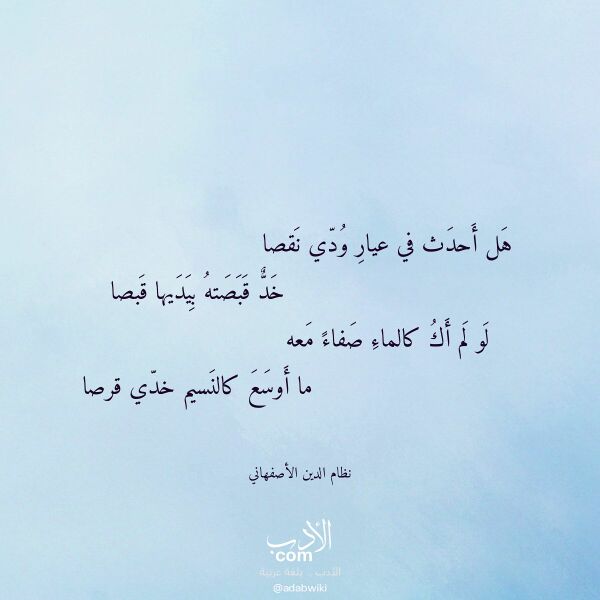 هَل أَحدَث في عيارِ وُدّي نَقصا
خَدٌّ قَبَصَتهُ بِيَدَيها قَبصا
لَو لَم أَكُ كالماءِ صَفاءً مَعه
ما أَوسَعَ كالنَسيم خدّي قرصا
نظام الدين الأصفهاني
الأدب
com
الأدب .. بلغة عربية
@adabwiki